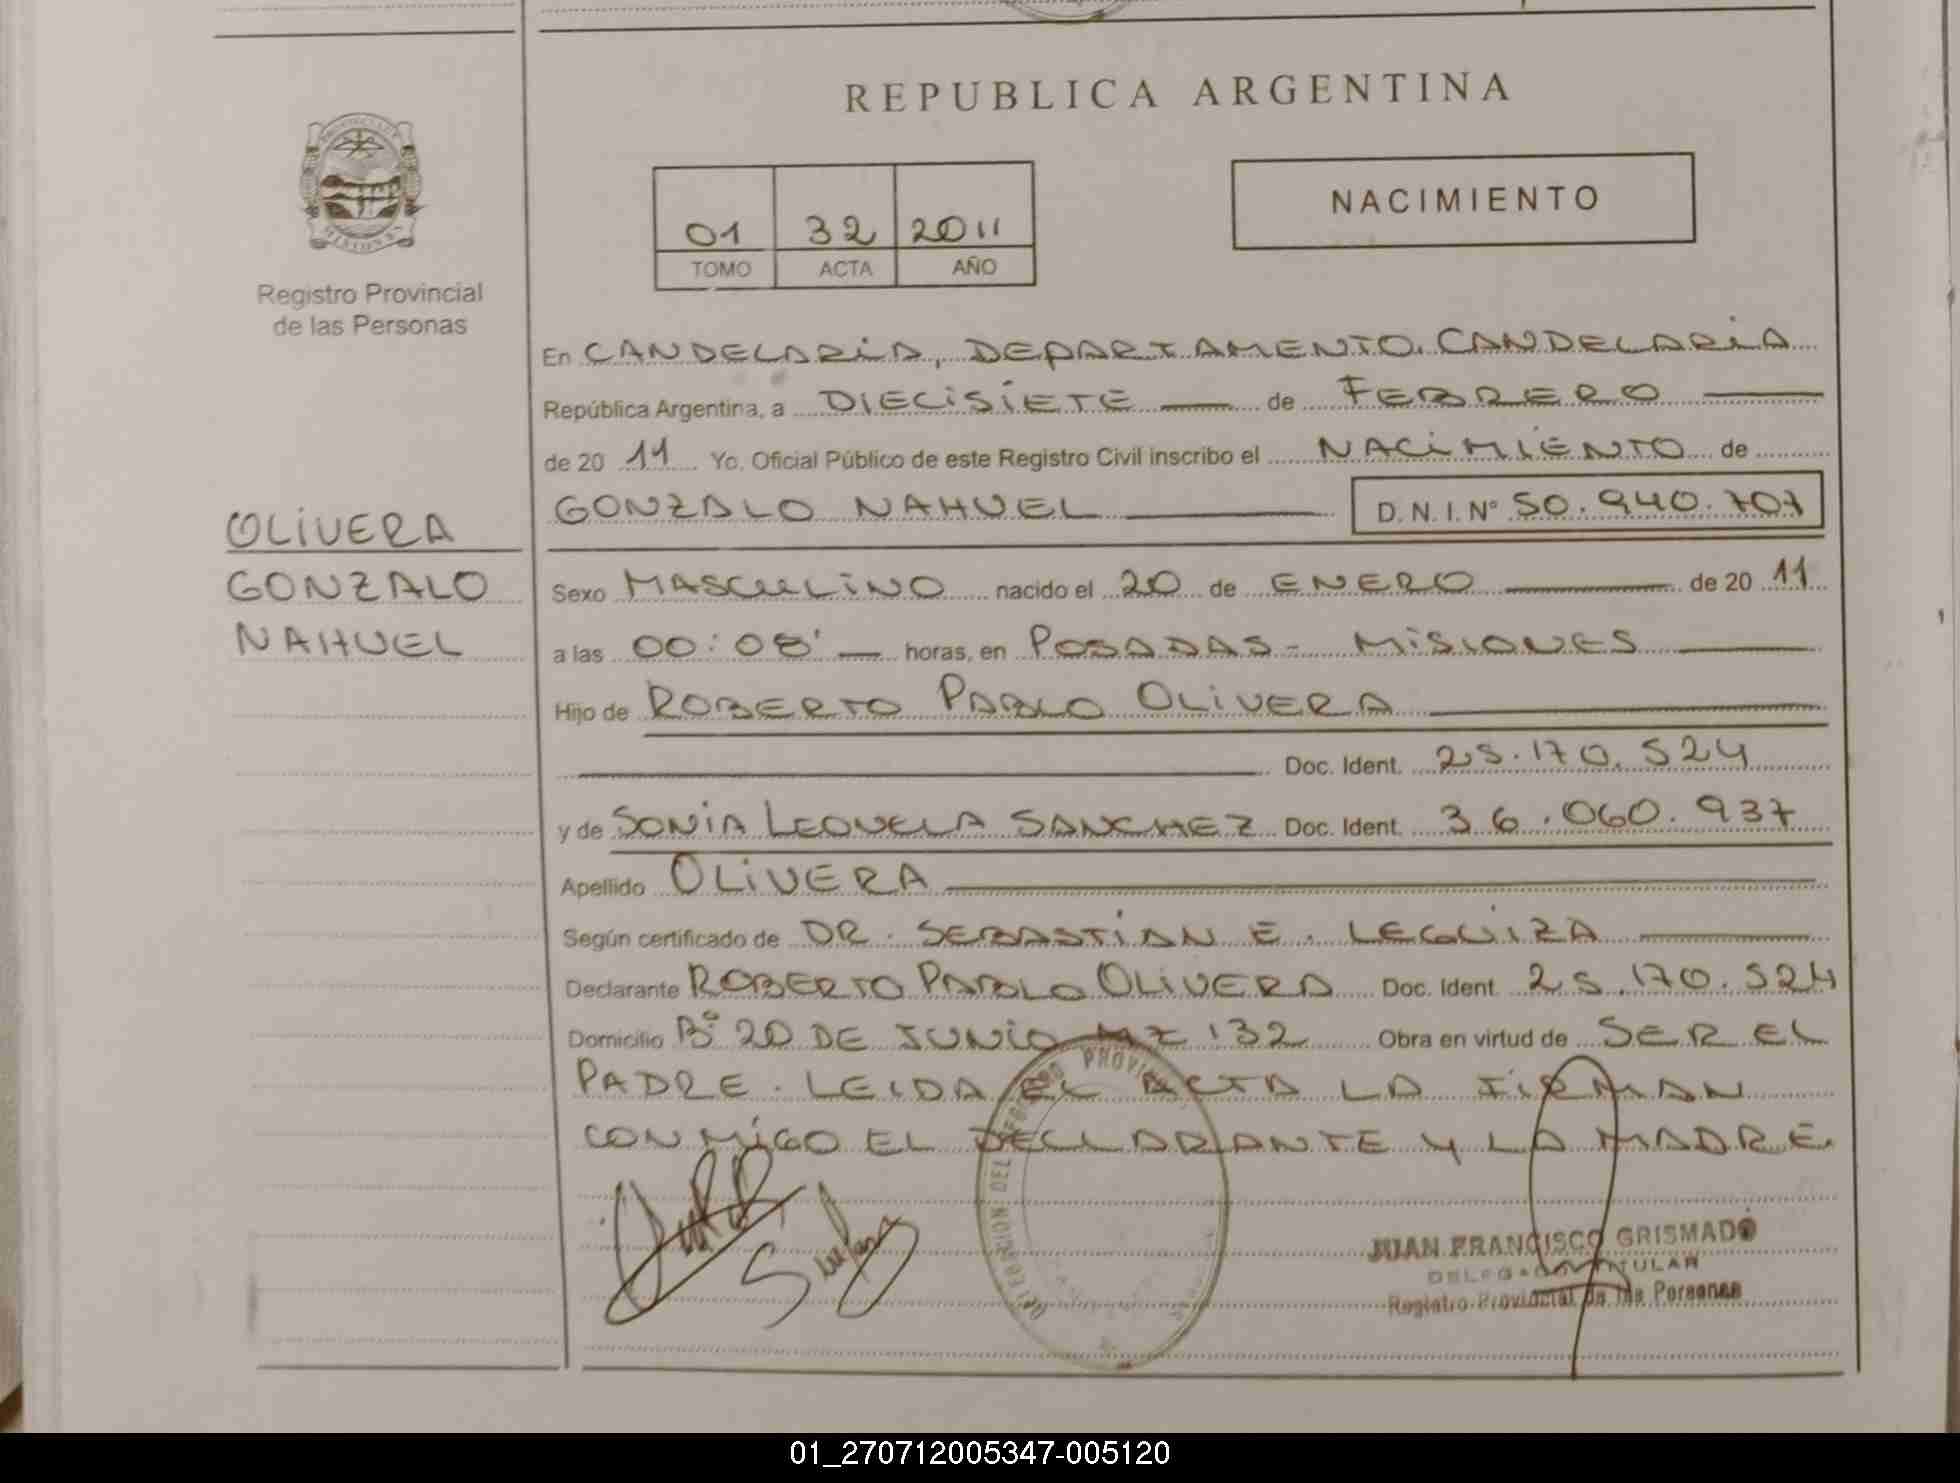 REPUBLICA ARGENTINA
PROVINCIA DE
MISIONES
Registro Provincial
de las Personas
01 32 2011
TOMO ACTA AÑO
NACIMIENTO
En CANDELARIA, DEPARTAMENTO CANDELARIA
República Argentina, a DIECISIETE de FEBRERO
de 20 11 Yo, Oficial Público de este Registro Civil inscribo el NACIMIENTO de
GONZALO NAHUEL D.N.I. Nº 50.940.707
OLIVERA
GONZALO
NAHUEL
Sexo MASCULINO nacido el 20 de ENERO de 20 11
a las 00:08' horas, en POSADAS - MISIONES
Hijo de ROBERTO PABLO OLIVERA
Doc. Ident. 25.170.524
y de SONIA SANCHEZ Doc. Ident. 36.060.937
Apellido OLIVERA
Según certificado de DR. SEBASTIAN E. LEGUIZA
Declarante ROBERTO PABLO OLIVERA Doc. Ident. 25.170.524
Domicilio Bº 20 DE JUNIO MZ 132 Obra en virtud de SER EL
PADRE. LEIDA EL ACTA LA FIRMAN
CONMIGO EL DECLARANTE Y LA MADRE.
JUAN FRANCISCO GRISMADO
DELEGADO TITULAR
Registro Provincial de las Personas
01_270712005347-005120